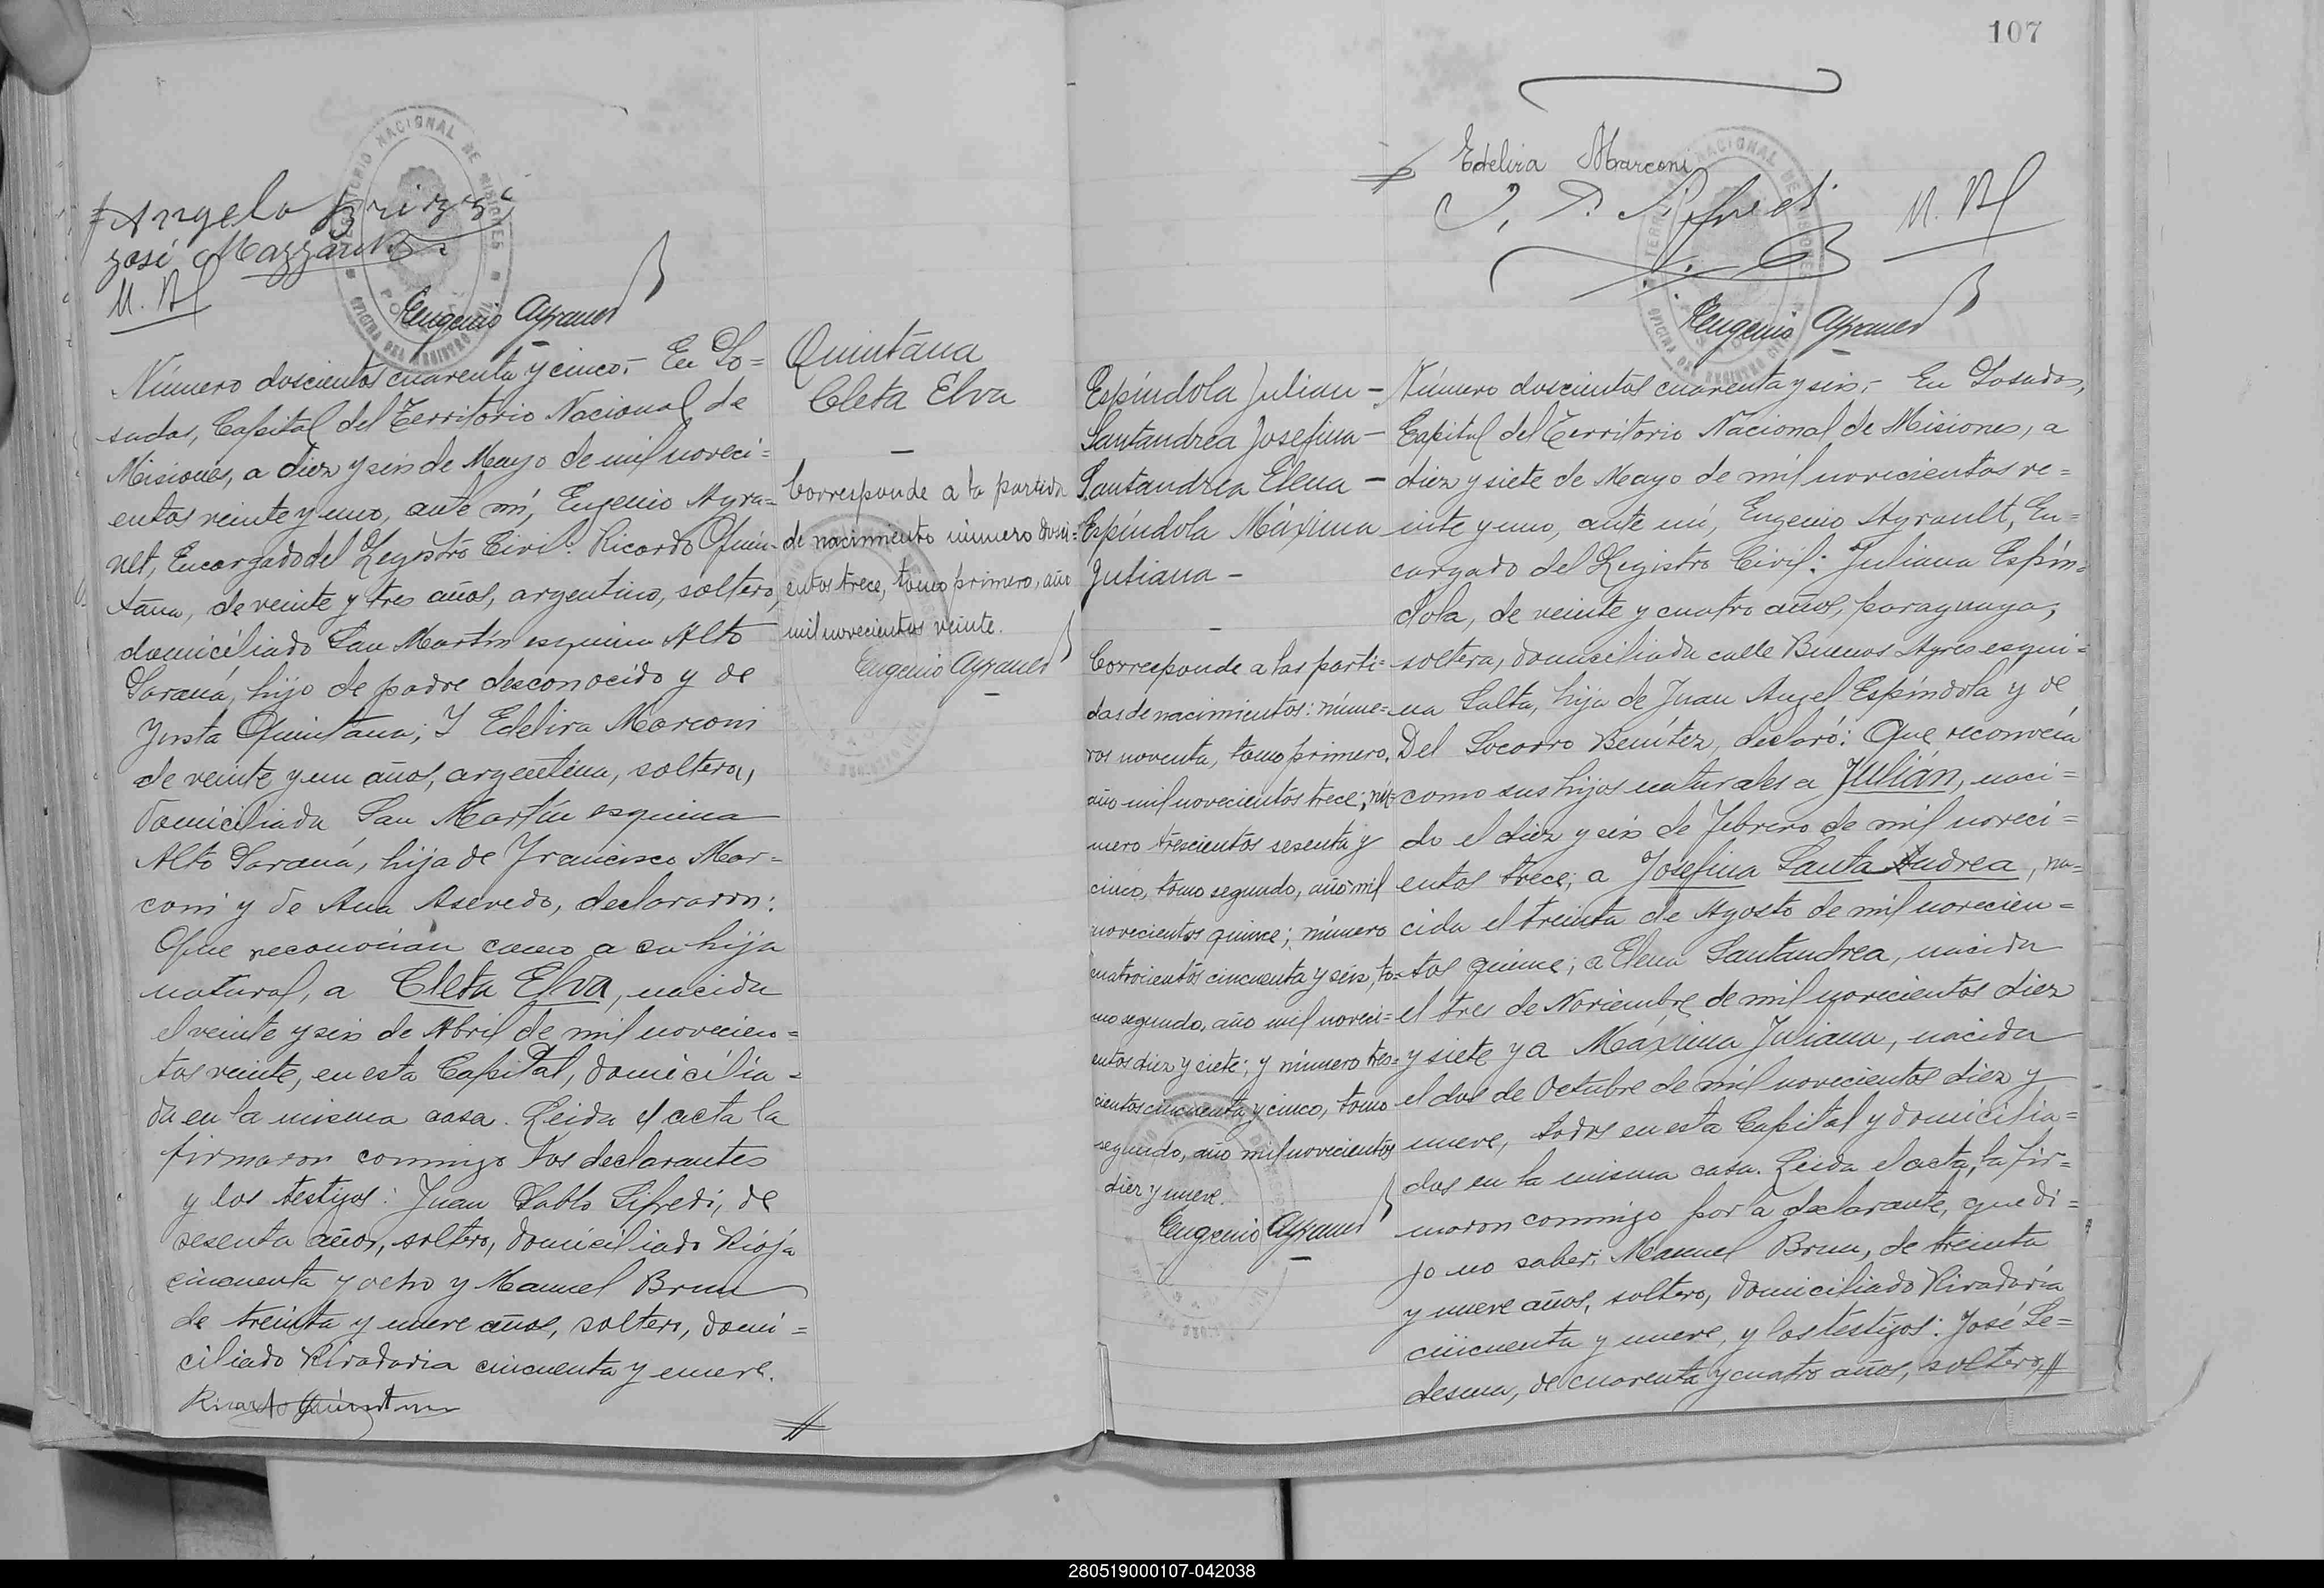 Angelo Brizzi
José Mazzanti
M. B
Eugenio Ayrault
Número doscientos cuarenta y cinco.- En Po=
sadas, Capital del Territorio Nacional de
Misiones, a diez y seis de Mayo de mil noveci=
entos veinte y uno, ante mí, Eugenio Ayra=
ult, Encargado del Registro Civil: Ricardo Quin-
tana, de veinte y tres años, argentino, soltero,
domiciliado San Martín esquina Alto
Paraná, hijo de padre desconocido y de
Justa Quintana; Y Edelira Marconi
de veinte y un años, argentina, soltera,
domiciliada San Martín esquina
Alto Paraná, hija de Francisco Mar=
coni y de Ana Asevedo, declararon:
Que reconocían como a su hija
natural, a Cleta Elva, nacida
el veinte y seis de Abril de mil novecien=
tos veinte, en esta Capital, domicilia=
da en la misma casa. Leida el acta la
firmaron conmigo los declarantes
y los testigos: Juan Pablo Sifredi, de
sesenta años, soltero, domiciliado Rioja
cincuenta y ocho y Manuel Brun
de treinta y nueve años, soltero, domi=
ciliado Rivadavia cincuenta y nueve.
Ricardo Quintana
Quintana
Cleta Elva
Corresponde a la partida
de nacimiento número dosci=
entos trece, tomo primero, año
mil novecientos veinte.
Eugenio Ayrault
107
Edelira Marconi
J. P. Sifredi
M. B
Eugenio Ayrault
Espíndola Julian -
Santandrea Josefina -
Santandrea Elena -
Espíndola Máxima
Juliana -
Corresponde a las parti=
das de nacimientos: núme=
ros noventa, tomo primero,
año mil novecientos trece; nú=
mero trescientos sesenta y
cinco, tomo segundo, año mil
novecientos quince; número
cuatrocientos cincuenta y seis, to=
mo segundo, año mil noveci=
entos diez y siete; y número tres=
cientos cincuenta y cinco, tomo
segundo, año mil novecientos
diez y nueve.
Eugenio Ayrault
Número doscientos cuarenta y seis,- En Posadas,
Capital del Territorio Nacional de Misiones, a
diez y siete de Mayo de mil novecientos ve=
inte y uno, ante mí, Eugenio Ayrault, En=
cargado del Registro Civil: Juliana Espín=
dola, de veinte y cuatro años, paraguaya,
soltera, domiciliada calle Buenos Ayres esqui=
na Salta, hija de Juan Angel Espíndola y de
Del Socorro Benítez, declaró: Que reconocía
como sus hijos naturales a Julián, naci=
do el diez y seis de Febrero de mil noveci=
entos trece; a Josefina Santa Andrea, na=
cida el treinta de Agosto de mil novecien=
tos quince; a Elena Santandrea, nacida
el tres de Noviembre de mil novecientos diez
y siete y a Máxima Juliana, nacida
el dos de Octubre de mil novecientos diez y
nueve, todos en esta Capital y domicilia=
dos en la misma casa. Leida el acta, la fir=
maron conmigo por la declarante, que di=
jo no saber: Manuel Brun, de treinta
y nueve años, soltero, domiciliado Rivadavia
cincuenta y nueve, y los testigos: José Le=
desma, de cuarenta y cuatro años, soltero,
280519000107-042038